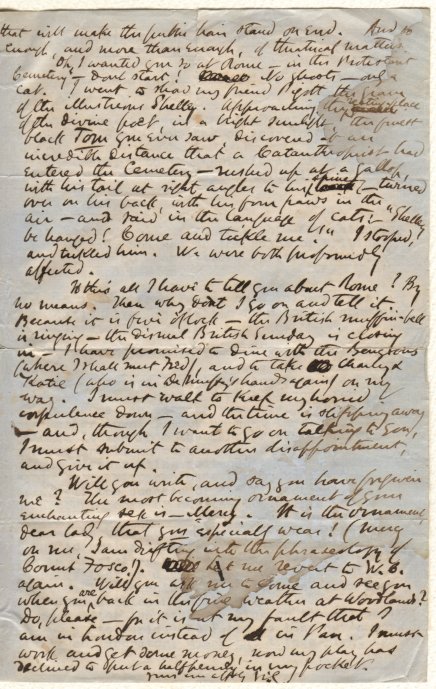 that will make the public hair stand on End. And so
Enough, and more than Enough, of theatrical matters.
Oh, I wanted you so at Rome – in the Protestant
Cemetery – Don't start! No ghosts – only a
cat. I went to show my friend Pigott the grave
of the illustrious Shelley. Approaching the resting place
of the divine poet in bright sunlight, the finest
black Tom you Ever saw, discovered at an
incredible distance that a Catanthropist had
Entered the Cemetery – rushed up at a gallop
with his tail at right angles to his spine – turned
over on his back with his four paws in the
air – and said in the language of cats: – "Shelley
be hanged! Come and tickle me!" I stooped
and tickled him. We were both profoundly
affected.
Is this all I have to tell you about Rome? By
no means. Then why don't I go on and tell it.
Because it is five o'clock – the British muffin-bell
is ringing – the dismal British Sunday is closing
in – I have promised to dine with the Benzons
(where I shall meet Fred), and to take Charley &
Katie (who is in De Mussy's hands again) on my
way. I must walk to keep my horrid
corpulence down – and the time is slipping away
– and, though I want to go on talking to you,
I must submit to another disappointment,
and give it up.
Will you write, and say you have forgiven
me? The most becoming ornament of your
Enchanting sex is – Mercy. It is the ornament
dear lady, that you especially wear! (mercy
on me, I am drifting into the phraseology of
Count Fosco!). Let me revert to W.C.
again. Will you ask me to come and see you
when you are back in the fine weather at Woodlands?
Do, please – for it is not my fault that I
am in London instead of in Pau. I must
work and get some money, now my play has
declined to put a halfpenny in my pocket.